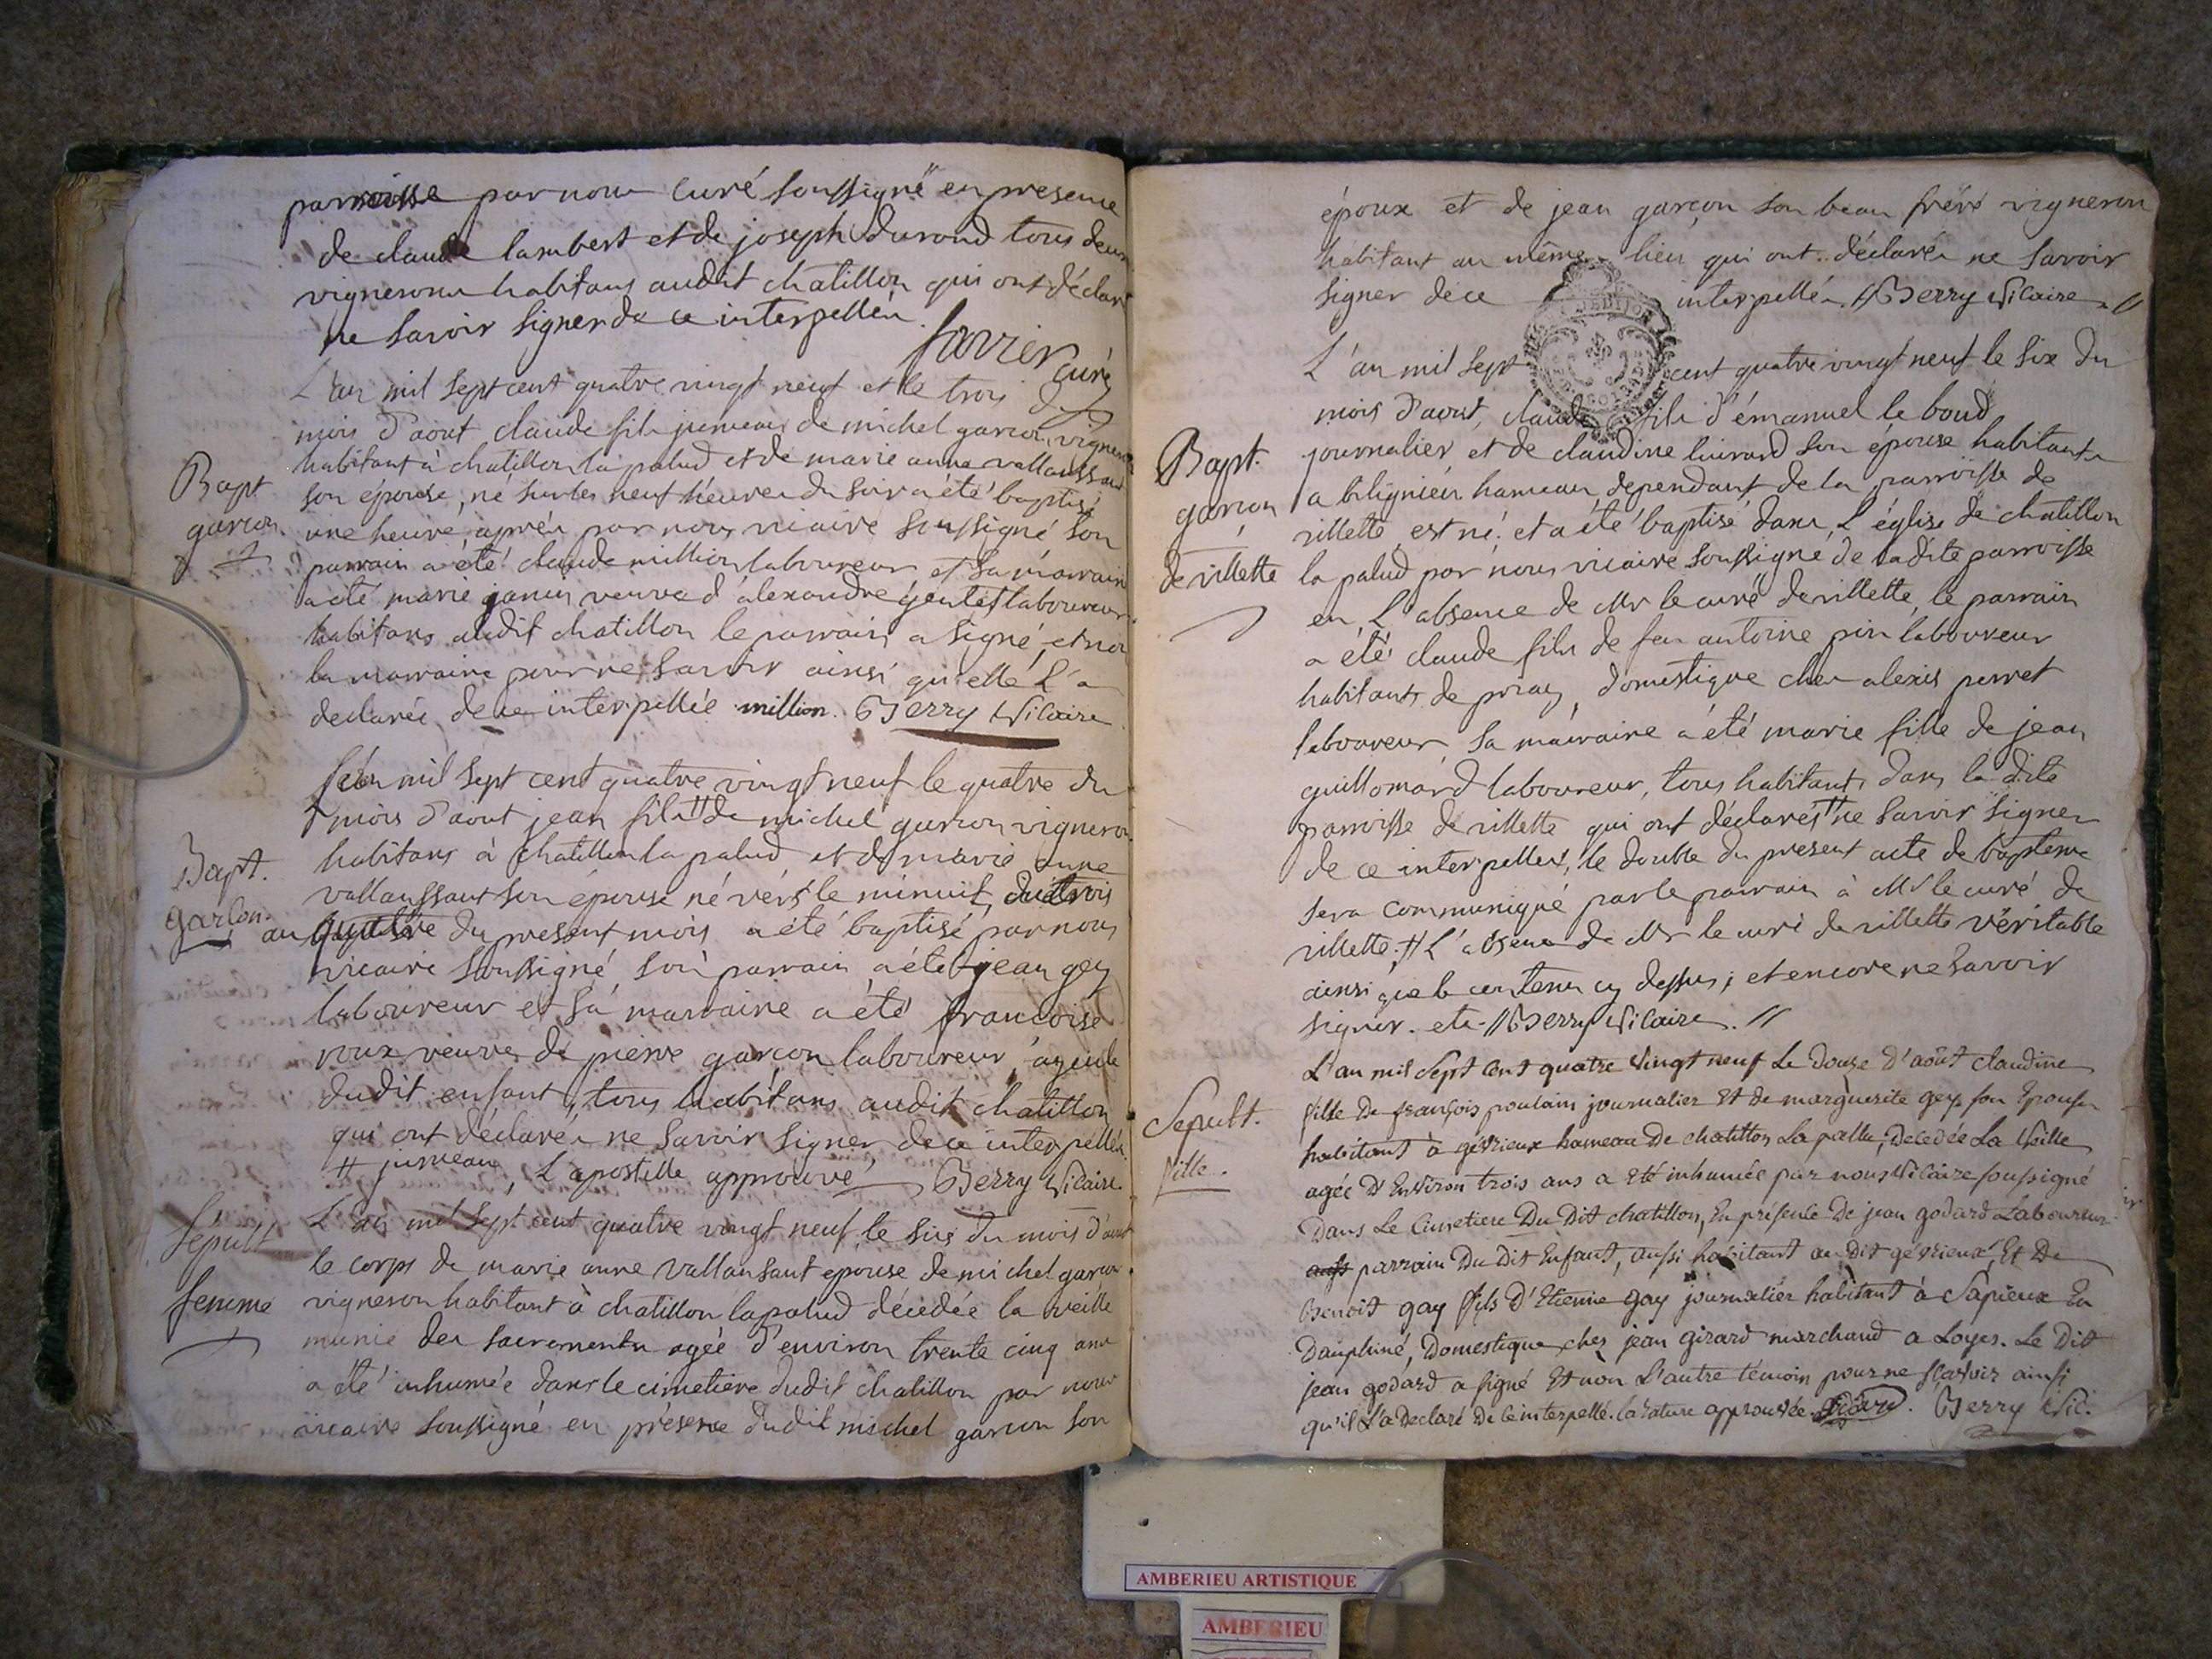 parroisse par nous curé soussigné en presence
de claude lambert et de joseph durand tous deux
vignerons habitans audit chatillon qui ont déclaré
ne savoir signer de ce interpellés
curé
L'an mil sept cent quatre vingt neuf et le trois du
mois d'aout claude fils jumeau de michel garcon vigneron
habitant à chatillon la palud et de marie anne vallanssant
son épouse, né sur les neuf heures du soir a été baptisé
Bapt
une heure après par nous vicaire soussigné son
garcon
parrain a été claude million laboureur et sa marraine
a été marie janin veuve d'alexandre gentet laboureur
habitans audit chatillon le parrain a signé, et non
la marraine pour ne savoir ainsi qu'elle l'a
declarée de ce interpellée million. Berry Vicaire
L'an mil sept cent quatre vingt neuf le quatre du
mois d'aout jean fils # de michel garcon vigneron
habitans à chatillon la palud et de marie anne
Bapt.
vallanssant son épouse né vers le minuit du trois
garcon.
au quatre du present mois a été baptisé par nous
vicaire soussigné, son parrain a été jean gey
laboureur et sa marraine a été francoise
roux veuve de pierre garcon laboureur, ayeule
dudit enfant, tous habitans audit chatillon
qui ont déclarés ne savoir signer de ce interpellés.
# jumeau, L'apostille approuvé Berry Vicaire.
L'an mil sept cent quatre vingt neuf, le six du mois d'aout
Sépult
le corps de marie anne Vallansant epouse de michel garcon
femme
vigneron habitant à chatillon la palud décédée la veille
munie des sacrements agée d'environ trente cinq ans
a été inhumée dans le cimetiere dudit chatillon par nous
vicaire soussigné en présence dudit michel garcon son
époux et de jean garcon son beau frére vigneron
habitant au même lieu qui ont déclarés ne savoir
signer de ce interpellés. // Berry Vicaire //
L'an mil sept cent quatre vingt neuf le six du
mois d'aout, claude fils d'émanuel le boud
Bapt.
journalier et de claudine livrard son épouse habitants
garcon
a bilignieu hameau dependant de la parroisse de
rillette est né et a été baptisé dans L'église de chatillon
de rillette
la palud par nous vicaire soussigné de la dite parroisse
en L'absence de Mr le curé de rillette, le parrain
a été claude fils de feu antoine pin laboureur
habitant de priay, domestique chez alexis perret
laboureur sa marraine a été marie fille de jean
guillomard laboureur, tous habitants dans la dite
parroisse de rillette qui ont déclarés # ne savoir signer
de ce interpellés, le double du present acte de baptème
sera communiqué par le parrain à Mr le curé de
rillette; # L'absence de Mr le curé de rillette véritable
ainsi que le contenu cy dessus; et encore ne savoir
signer. etc // Berry Vicaire. //
L'an mil Sept Cent quatre Vingt neuf Le Douze D'aôut claudine
Sepult.
fille De françois poulain journalier Et De marguerite gey son Epouse
fille.
habitant à gévrieux hameau De chatillon La pallu, Decedée La Veille
agée D'Environ trois ans a Eté inhumée par nous Vicaire soussigné
Dans Le Cimetiere Du Dit chatillon, En présence De jean godard Laboureur
parrain Du Dit Enfant, aussi habitant au Dit gévrieux, Et De
Benoit gay fils D'Etienne gay journalier habitant à Sapieux En
Dauphiné, Domestique chez jean girard marchand a Loyes. Le Dit
jean godard a signé Et non L'autre témoin pour ne sçavoir ainsi
qu'il L'a Declaré De ce interpellé. la rature approuvée. Berry Vic.
AMBERIEU ARTISTIQUE
AMBERIEU